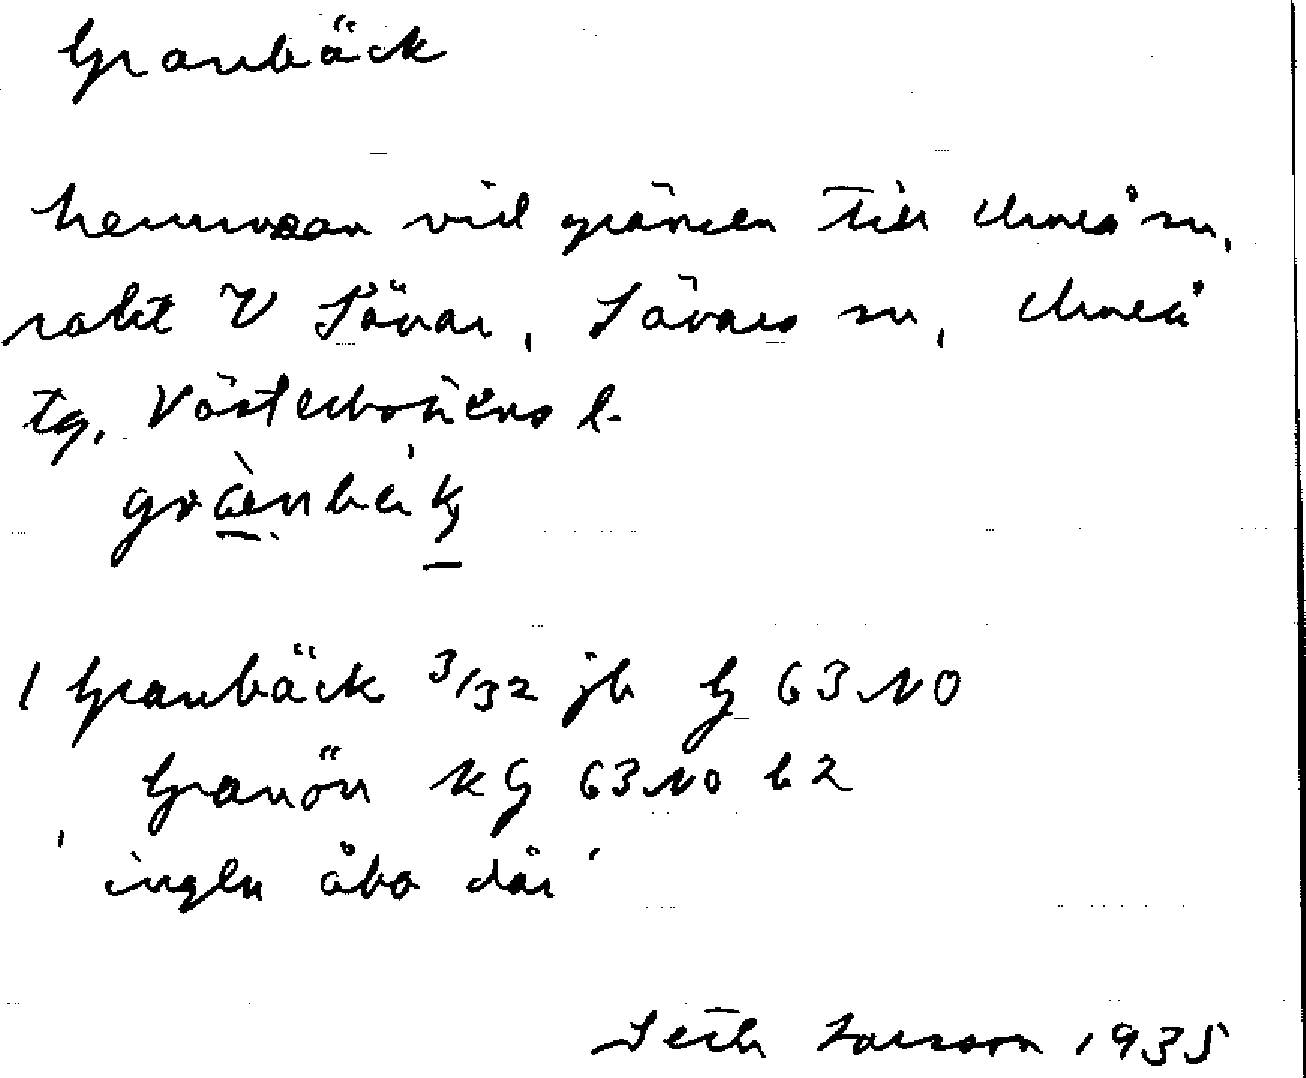 Granbäck
hemman vid gränsen till Umeå sn,
rakt V Sävar, Sävars sn, Umeå
tg, Västerbottens l.
1 Granbäck 3/32 jb G 63 NO
Granön KG 63 NO b2
'ingen åbo där'
Seth Larsson 1935